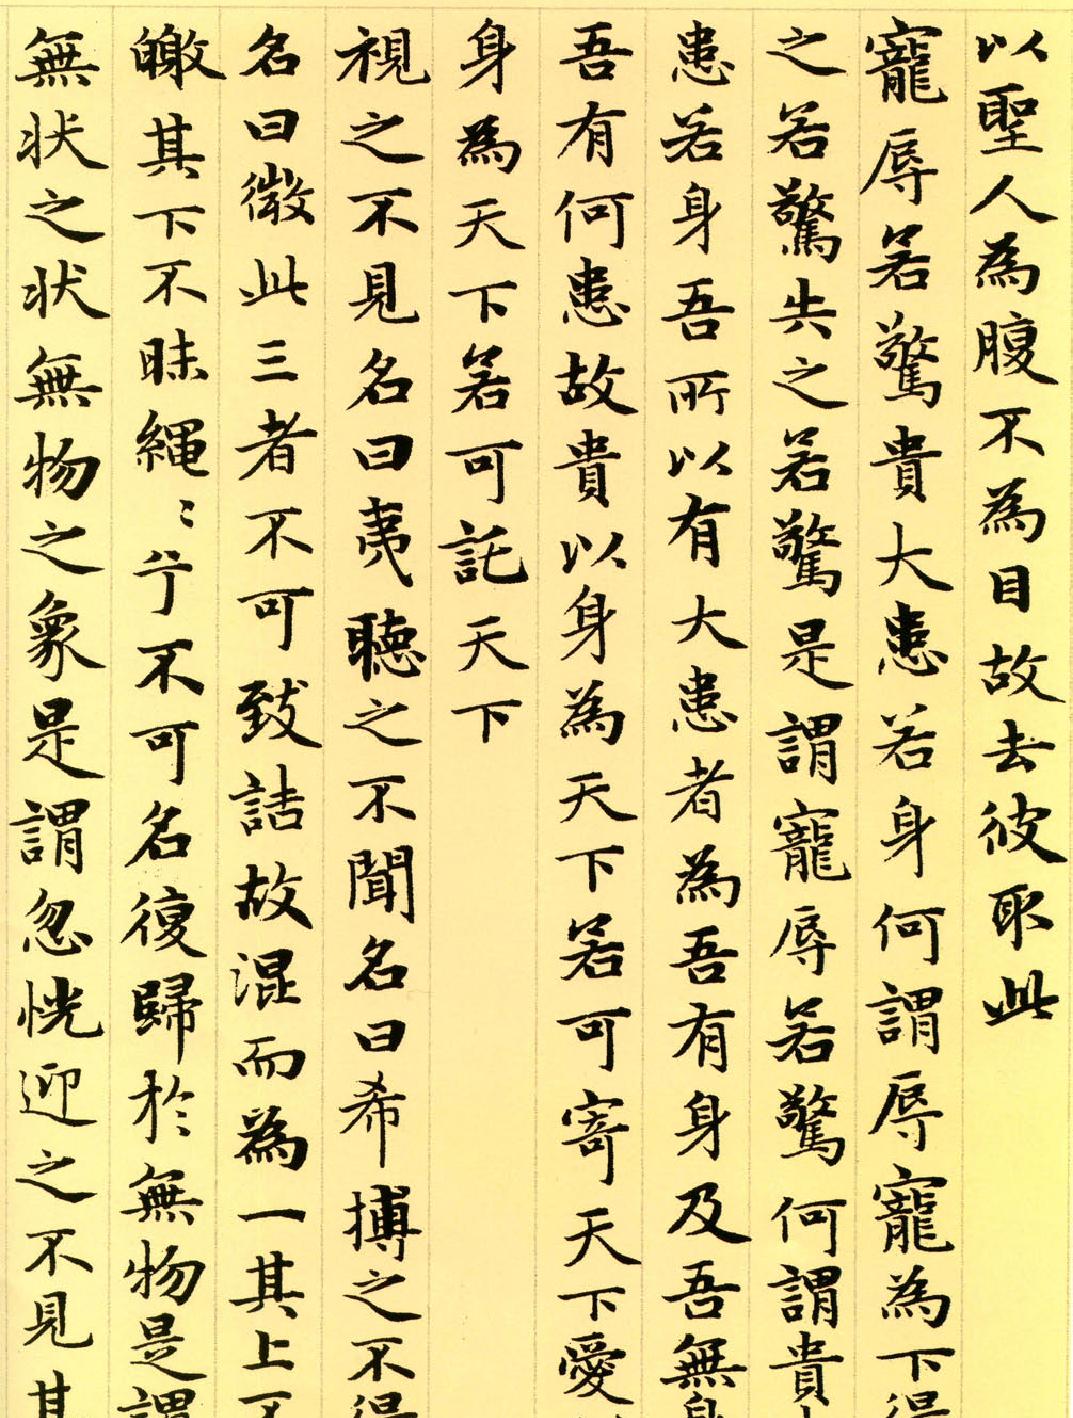 以聖人為腹不為目故去彼取此
寵辱若驚貴大患若身何謂辱寵為下得
之若驚失之若驚是謂寵辱若驚何謂貴
患若身吾所以有大患者為吾有身及吾無身
吾有何患故貴以身為天下若可寄天下愛
身為天下若可託天下
視之不見名曰夷聽之不聞名曰希搏之不得
名曰微此三者不可致詰故混而為一其上不
皦其下不昧繩〻兮不可名復歸於無物是謂
無状之状無物之象是謂忽恍迎之不見其